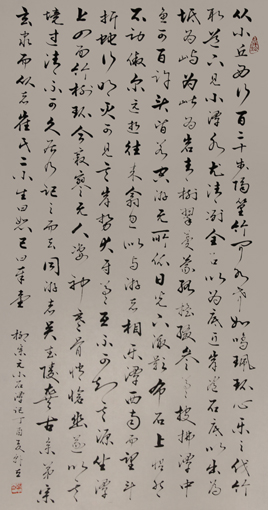 从小丘西行百二十步隔篁竹闻水声如鸣珮环心乐之伐竹
取道下见小潭水尤清冽全石以为底近岸卷石底以出为
坻为屿为嵁为岩青树翠蔓蒙络摇缀参差披拂潭中
鱼可百许头皆若空游无所依日光下澈影布石上怡然
不动俶尔远逝往来翕忽似与游者相乐潭西南而望斗
折蛇行明灭可见其岸势犬牙差互不可知其源坐潭
上四面竹树环合寂寥无人凄神寒骨悄怆幽邃以其
境过清不可久居乃记之而去同游者吴武陵龚古余弟宗
玄隶而从者崔氏二小生曰恕己曰奉壹
柳宗元小石潭记丁酉夏